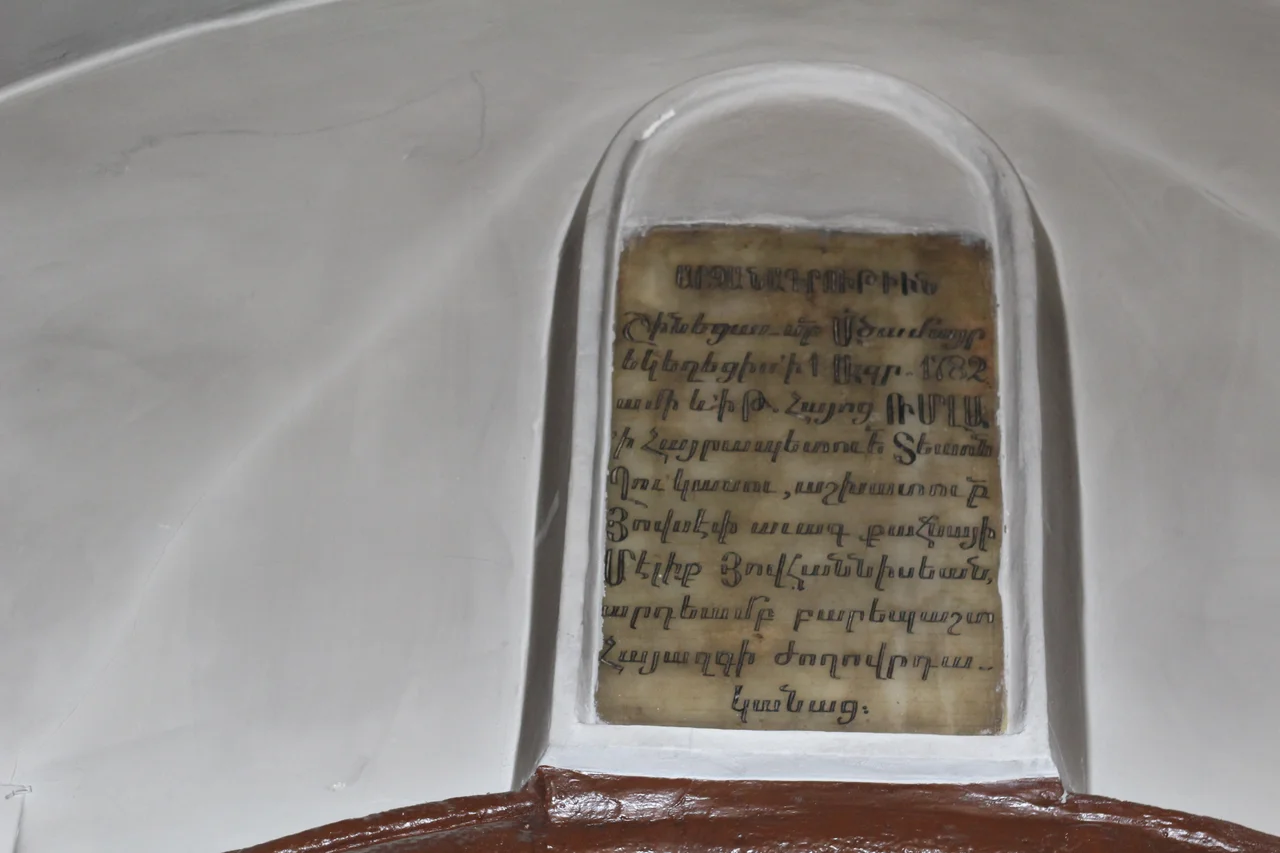 ԱՐՁԱՆԱԳՐՈՒԹԻՒՆ
Շինեցաւ սբ Ածամայր
եկեղեցիս ՛ի 1 Ապր. 1782
ամի և ՛ի թ. Հայոց ՌՄԼԱ
՛ի Հայրապետուե Տեառն
Ղուկասու, աշխատուբ
Յովսէփ աւագ քահնայի
Մէլիք Յովհաննիսեան,
արդեամբ բարեպաշտ
Հայազգի ժողովրդա-
կանաց։